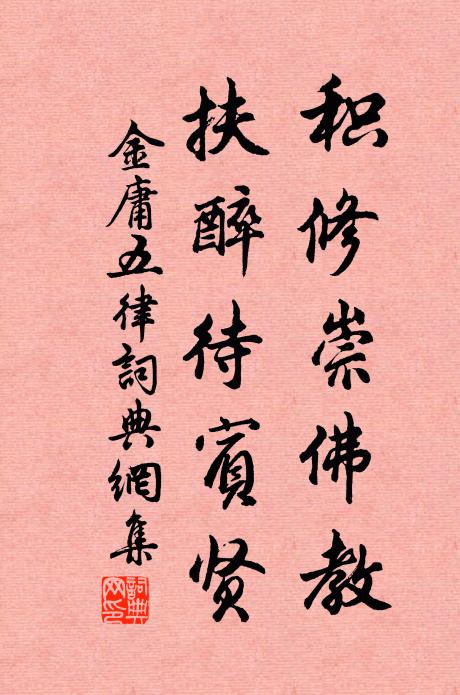 积修崇佛教
扶醉待賓贤
金庸五律詞典網集
詞典網印